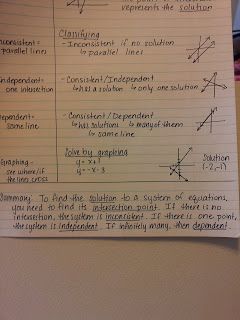 represents the solution
Clarifying
inconsistent =
parallel lines
- Inconsistent if no solution
↳ parallel lines
independent =
one intersection
- Consistent/Independent
↳ has a solution ↳ only one solution
dependent =
same line
- Consistent/Dependent
↳ has solutions ↳ many of them
↳ same line
Graphing -
see where/if
the lines cross
Solve by graphing
y = x + 1
y = -x - 3
Solution
(-2, -1)
Summary: To find the solution to a system of equations,
you need to find its intersection point. If there is no
intersection, the system is inconsistent. If there is one point,
the system is independent. If infinitely many, then dependent.